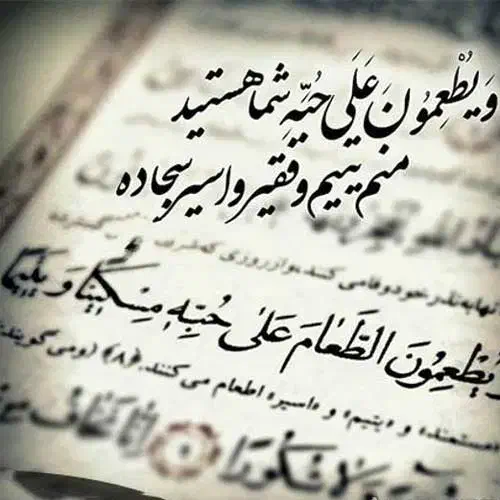 وَ یُطْعِمُونَ عَلَی حُبِّهِ شما هستید
منم یتیم و فقیر و اسیر سجاده
آنها به نذر خود وفا می‌کنند، و از روزی که شرش
یُطْعِمُونَ الطَّعٰامَ عَلیٰ حُبِّهِ مِسْکِینًا وَ یَتِیمًا
«مستمند» و «یتیم» و «اسیر» اطعام می کنند.(۸) (و می گویند:
شُکُورًا ۹ إِنَّا نَخَافُ مِنْ